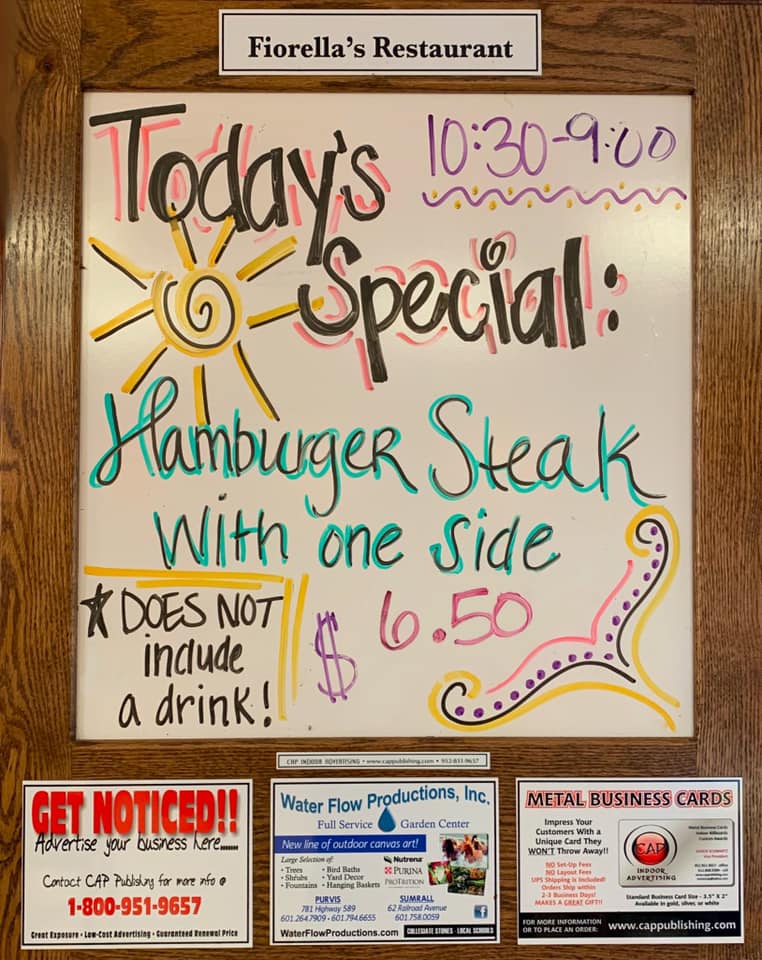 Fiorella's Restaurant
Today's
10:30-9:00
Special:
Hamburger Steak
With one side
$ 6.50
DOES NOT
include
a drink!
CAP INDOOR ADVERTISING • www.cappublishing.com • 952-831-9657
GET NOTICED!!
Advertise your business here......
Contact CAP Publishing for more info @
1-800-951-9657
Great Exposure • Low-Cost Advertising • Guaranteed Renewal Price
Water Flow Productions, Inc.
Full Service Garden Center
New line of outdoor canvas art!
Large Selection of:
• Trees • Bird Baths
• Shrubs • Yard Decor
• Fountains • Hanging Baskets
Nutrena
PURINA
PROTRITION
PURVIS
781 Highway 589
601.264.7909 • 601.794.6655
SUMRALL
62 Railroad Avenue
601.758.0059
WaterFlowProductions.com
COLLEGIATE STONES - LOCAL SCHOOLS
METAL BUSINESS CARDS
Impress Your
Customers With a
Unique Card They
WON'T Throw Away!!
NO Set-Up Fees
NO Layout Fees
UPS Shipping is Included!
Orders Ship within
2-3 Business Days!
MAKES A GREAT GIFT!!
Metal Business Cards
Indoor Billboards
Custom Awards
CAP
INDOOR
ADVERTISING
Vice President
Standard Business Card Size - 3.5" X 2"
Available in gold, silver, or white
FOR MORE INFORMATION
OR TO PLACE AN ORDER:
www.cappublishing.com